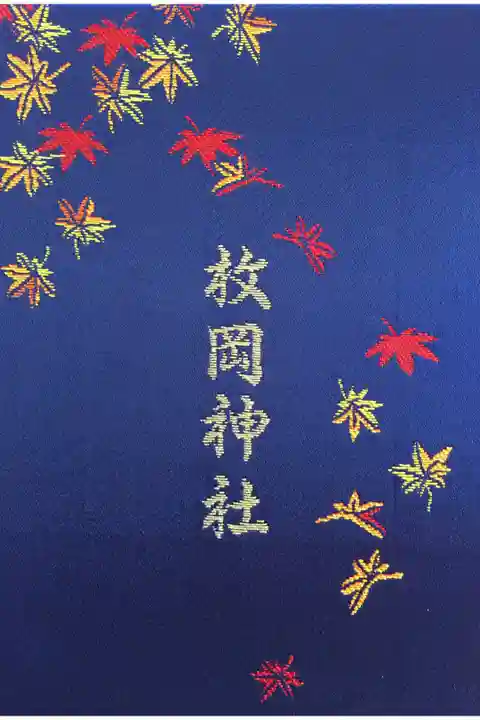 枚岡神社